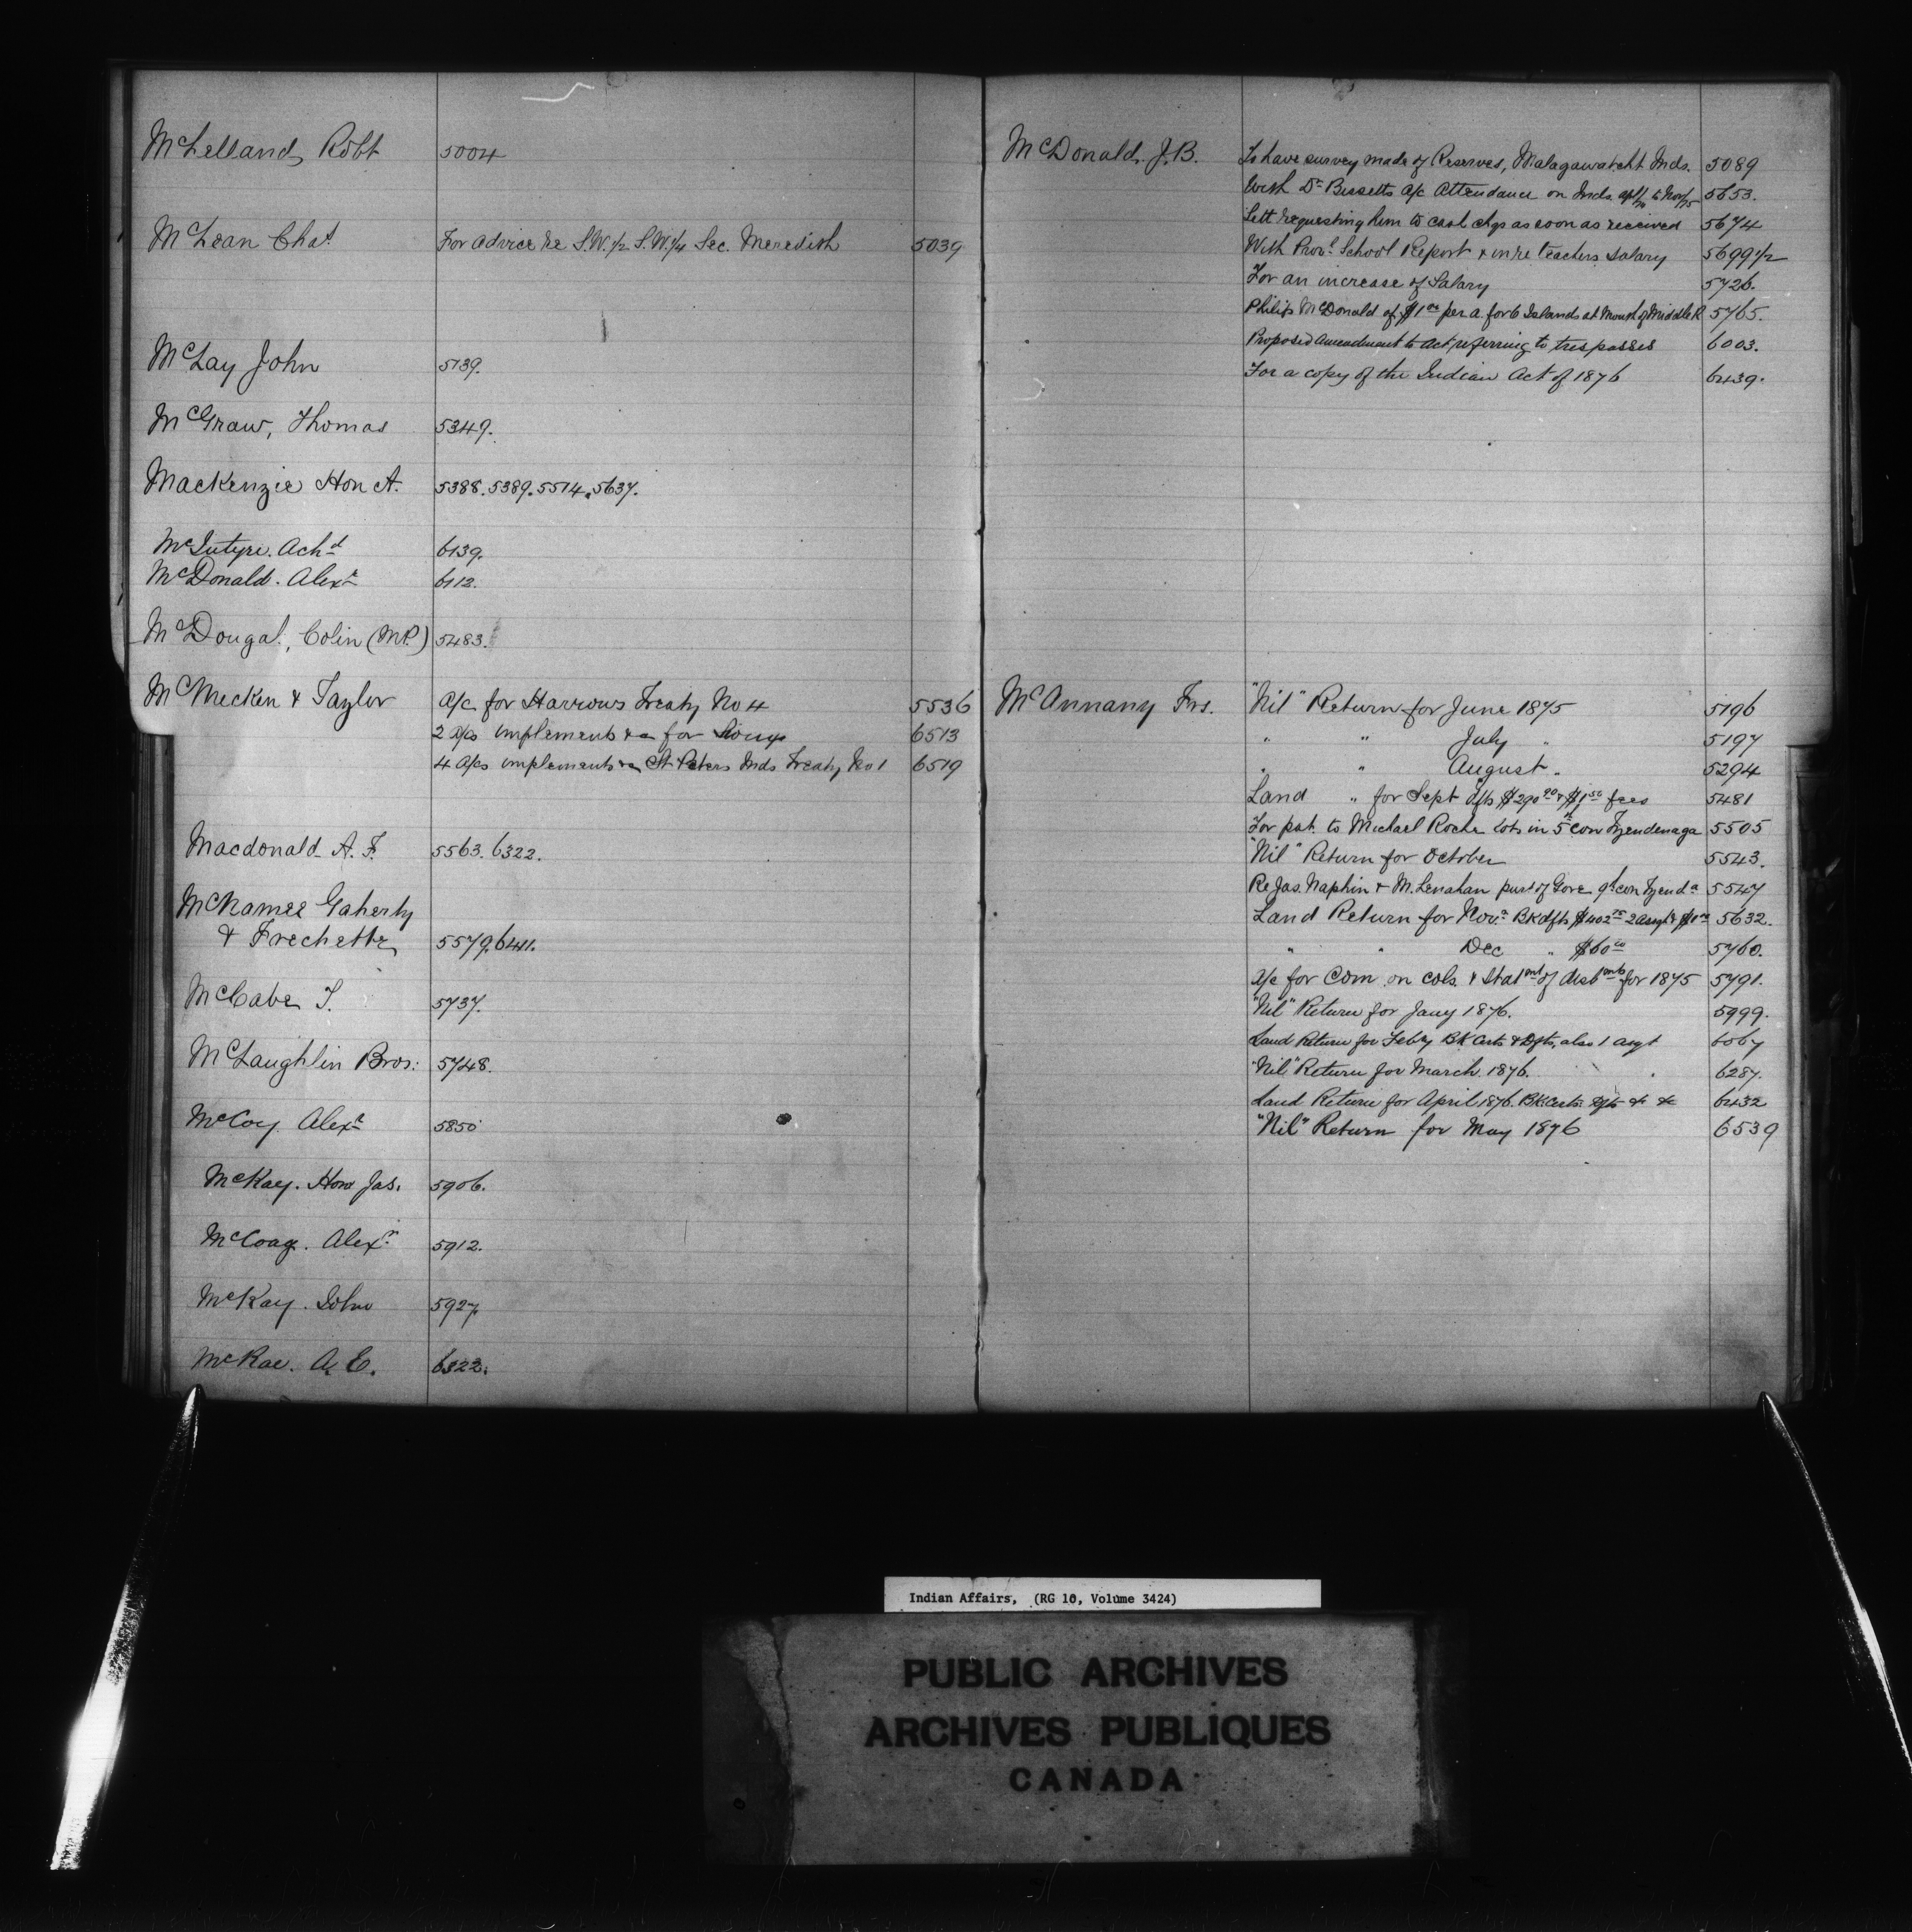 McLelland, Robt 5004
McLean Chas. For advice re S.W. 1/2 S.W. 1/4 Sec. Meredith 5039
McLay John 5139.
McGraw, Thomas 5349.
Mackenzie Hon A. 5388. 5389. 5514. 5637.
McIntyre. Achd 6139.
McDonald. Alexr 6112.
McDougal, Colin (MP.) 5483.
McMecken & Taylor a/c for Harrows Treaty No 4 5536
2 a/cs implements &c for Sioux 6513
4 a/cs implements &c St Peters Inds Treaty No 1 6519
Macdonald A. F. 5563. 6322.
McNamee Gaherty
& Frechette 5579. 6411.
McCabe T. 5737.
McLaughlin Bros: 5748.
McCoy Alexr 5850
McKay. Hon Jas. 5906.
Alexr 5912.
McKay. John 5927.
McRae. A. E. 6322.
McDonald. J. B. To have survey made of Reserves, Malagawatcht Inds. 5089
With Dr Bissetts a/c Attendance on Inds. to Nov/75 5653.
Lett requesting him to cash chqs as soon as received 5674
With Provl School Report & in re teachers salary 5699 1/2
For an increase of Salary 5726.
Philip McDonald of $1 00 per a. for 6 Islands at Mouth of Middle R 5765.
Proposed amendment to Act referring to trespasses 6003.
For a copy of the Indian Act of 1876 6439.
McAnnany Frs. "Nil" Return for June 1875 5196
" " July " 5197
" " August " 5294
Land " for Sept dfts $290 90 & $1 50 fees 5481
For pat. to Michael Roche lots in 5th Con Tyendenaga 5505
"Nil" Return for October 5543.
Re Jas. Naphin & M. Lenahan part of Gore 9th con Tyenda 5547
Land Return for Novr BK dfts $402 75 2 asgts & 5632.
" " Dec " $60 00 5760.
a/c for Com on cols. & Statmt of disbmts for 1875 5791.
"Nil" Return for Jany 1876. 5999.
Land Return for Feby BK Certs & Dfts, also 1 asgt 6067
"Nil" Return for March 1876. 6287.
Land Return for April 1876. BK Certs dfts &c &c 6432
"Nil" Return for May 1876 6539
Indian Affairs, (RG 10, Volume 3424)
PUBLIC ARCHIVES
ARCHIVES PUBLIQUES
CANADA